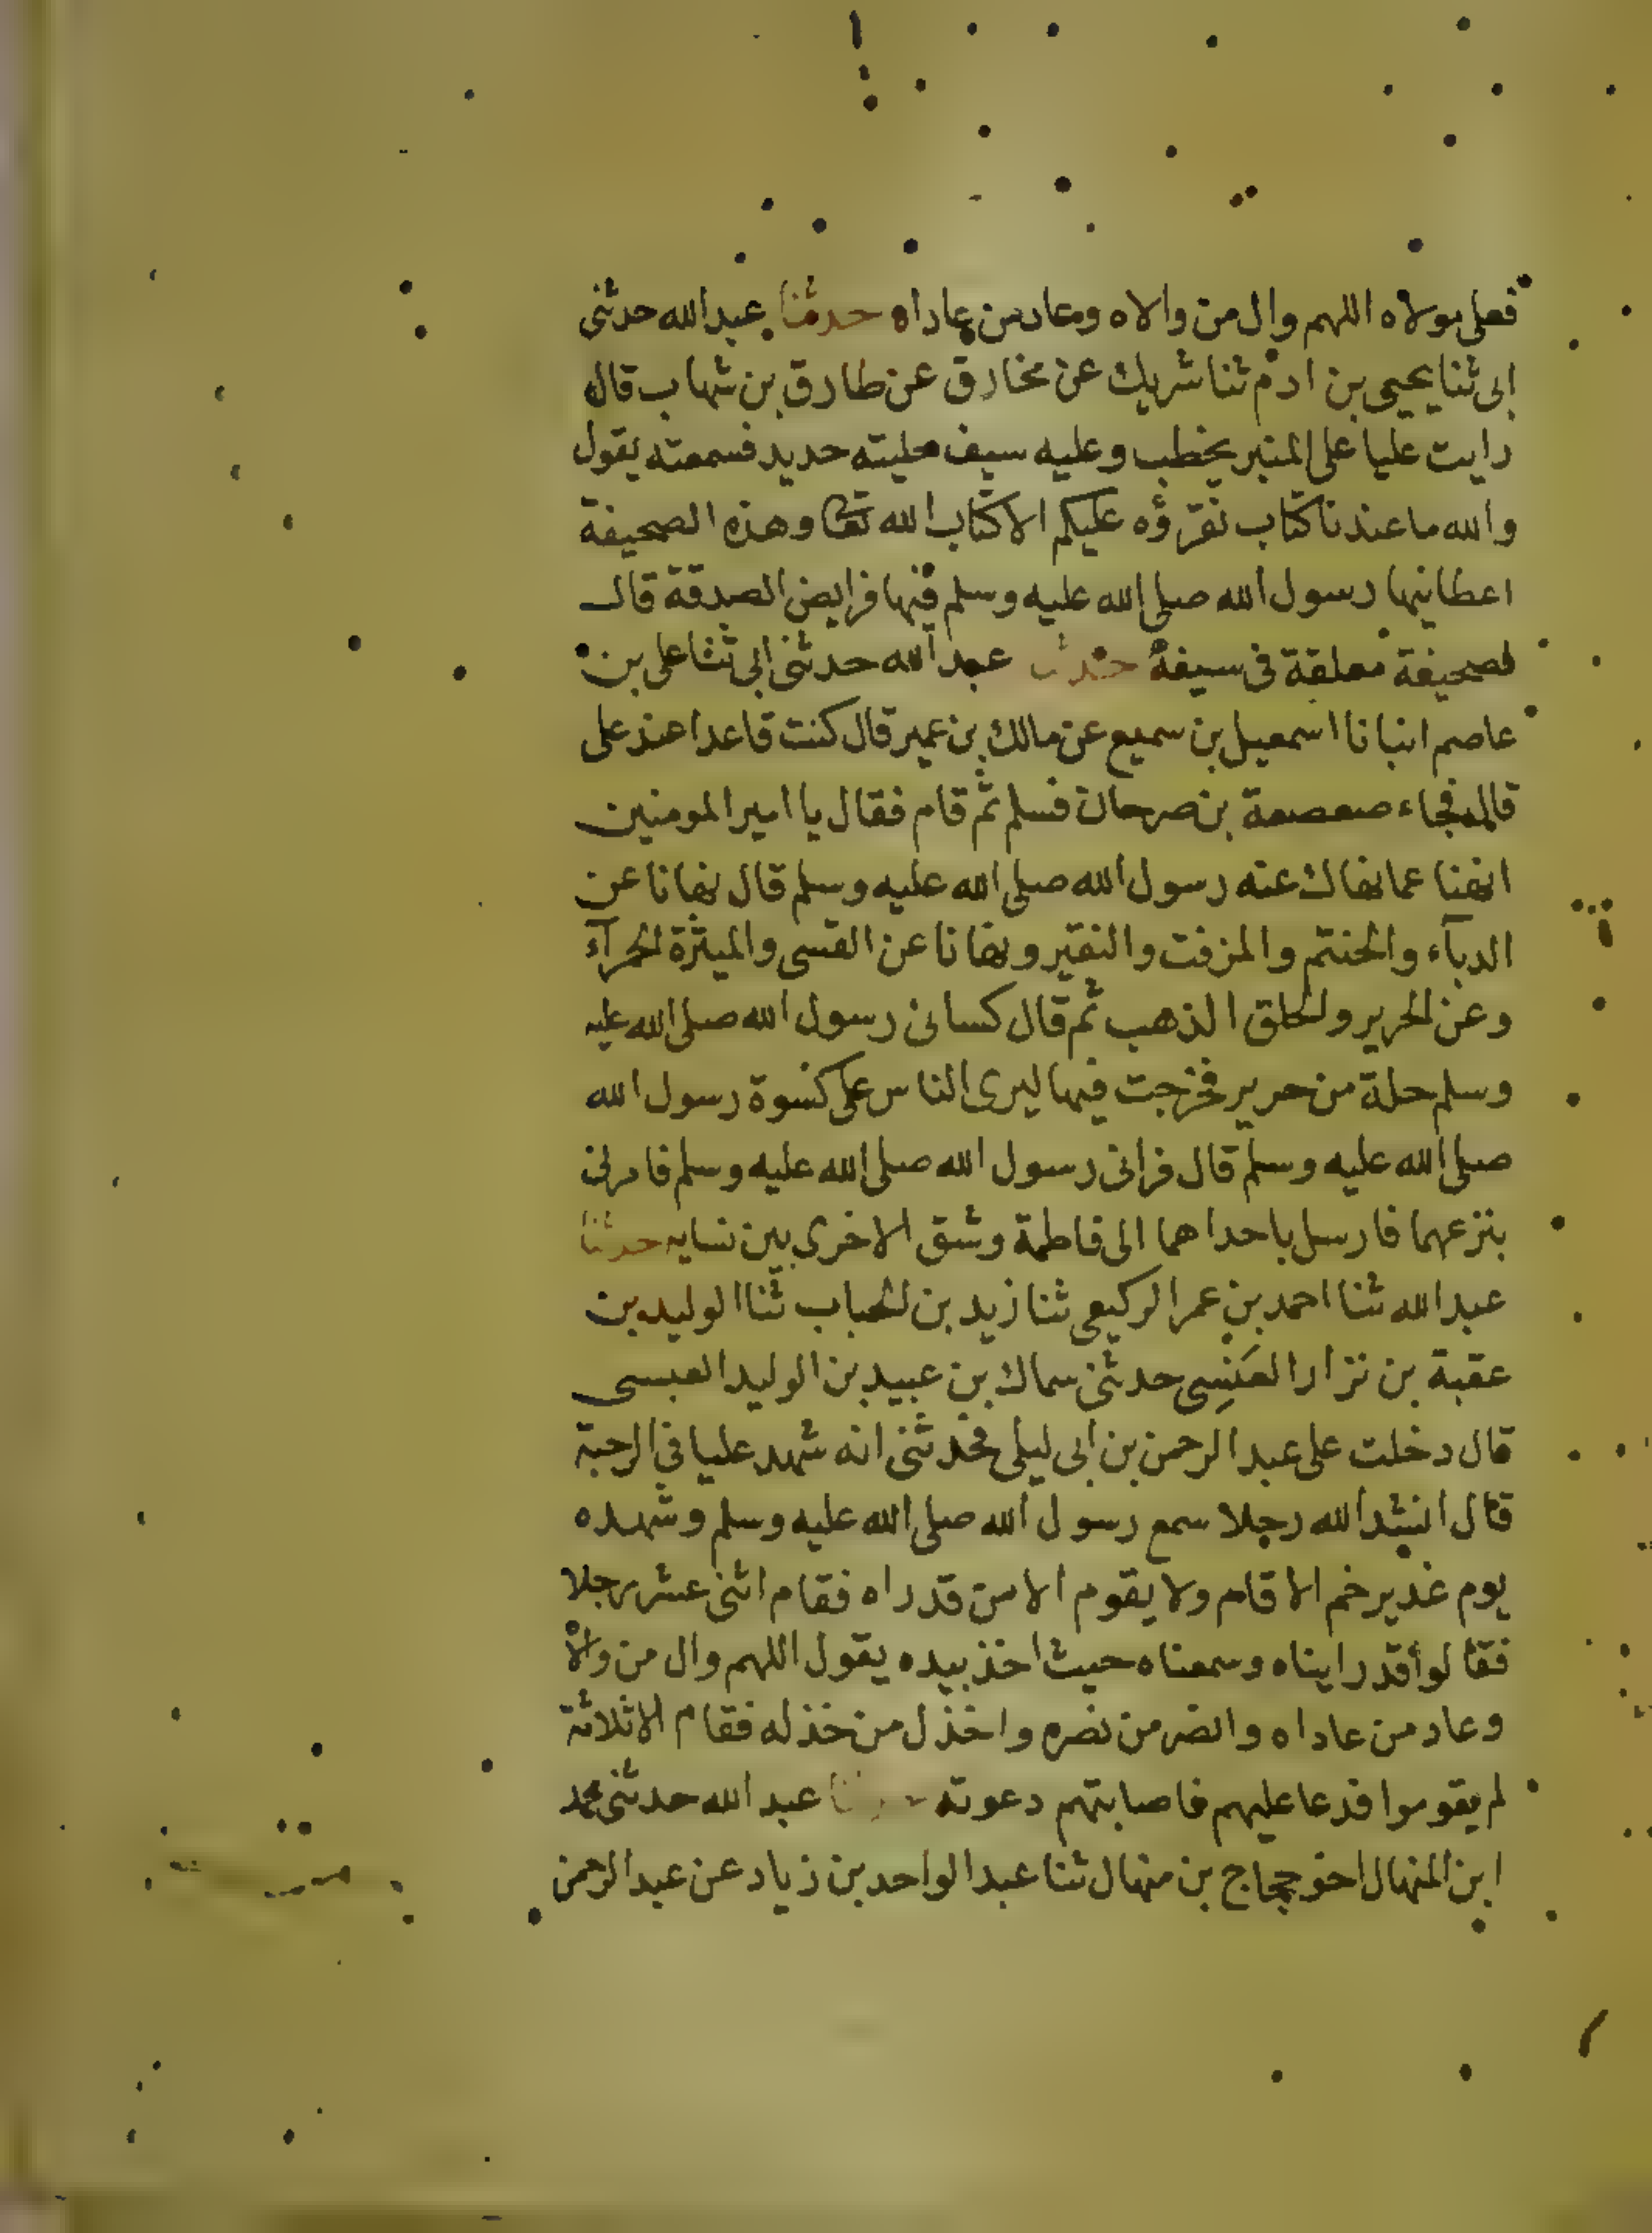 فعلى مولاه اللهم وال من والاه وعاد من عاداه حدثنا عبد الله حدثنى
ابى ثنا يحيى بن ادم ثنا شريك عن مخارق عن طارق بن شهاب قال
رايت عليا على المنبر يخطب وعليه سيف حليته حديد فسمعته يقول
والله ما عندنا كتاب نقرؤه عليكم الا كتاب الله تعا وهذه الصحيفة
اعطانيها رسول الله صلى الله عليه وسلم فيها فرايض الصدقة قال
لصحيفة معلقة فى سيفه حدثنا عبد الله حدثنى ابى ثنا على بن
عاصم انبانا اسمعيل بن سميع عن مالك بن عمير قال كنت قاعدا عند على
قال فجاء صعصعة بن صرحان فسلم ثم قام فقال يا امير المومنين
انهنا عما نهاك عنه رسول الله صلى الله عليه وسلم قال نهانا عن
الدبآء والحنتم والمزفت والنقير ونهانا عن القسى والميثرة الحمرآء
وعن الحرير والحلق الذهب ثم قال كسانى رسول الله صلى الله عليه
وسلم حلة من حرير فخرجت فيها ليرى الناس على كسوة رسول الله
صلى الله عليه وسلم قال فرانى رسول الله صلى الله عليه وسلم فامرنى
بنزعهما فارسل باحداهما الى فاطمة وشق الاخرى بين نسايه حدثنا
عبد الله ثنا احمد بن عمر الوكيعى ثنا زيد بن الحباب ثنا الوليد بن
عقبة بن نزار العَنْسِى حدثنى سماك بن عبيد بن الوليد العبسى
قال دخلت على عبد الرحمن بن ابى ليلى فحدثنى انه شهد عليا فى الرحبة
قال انشد الله رجلا سمع رسول الله صلى الله عليه وسلم وشهده
يوم غدير خم الا قام ولا يقوم الا من قد راه فقام اثنى عشر رجلا
فقالوا قد رايناه وسمعناه حيث اخذ بيده يقول اللهم وال من والاه
وعاد من عاداه وانصر من نصره واخذل من خذله فقام الا ثلاثة
لم يقوموا فدعا عليهم فاصابتهم دعوته حدثنا عبد الله حدثنى محمد
ابن المنهال اخو حجاج بن منهال ثنا عبد الواحد بن زياد عن عبد الرحمن